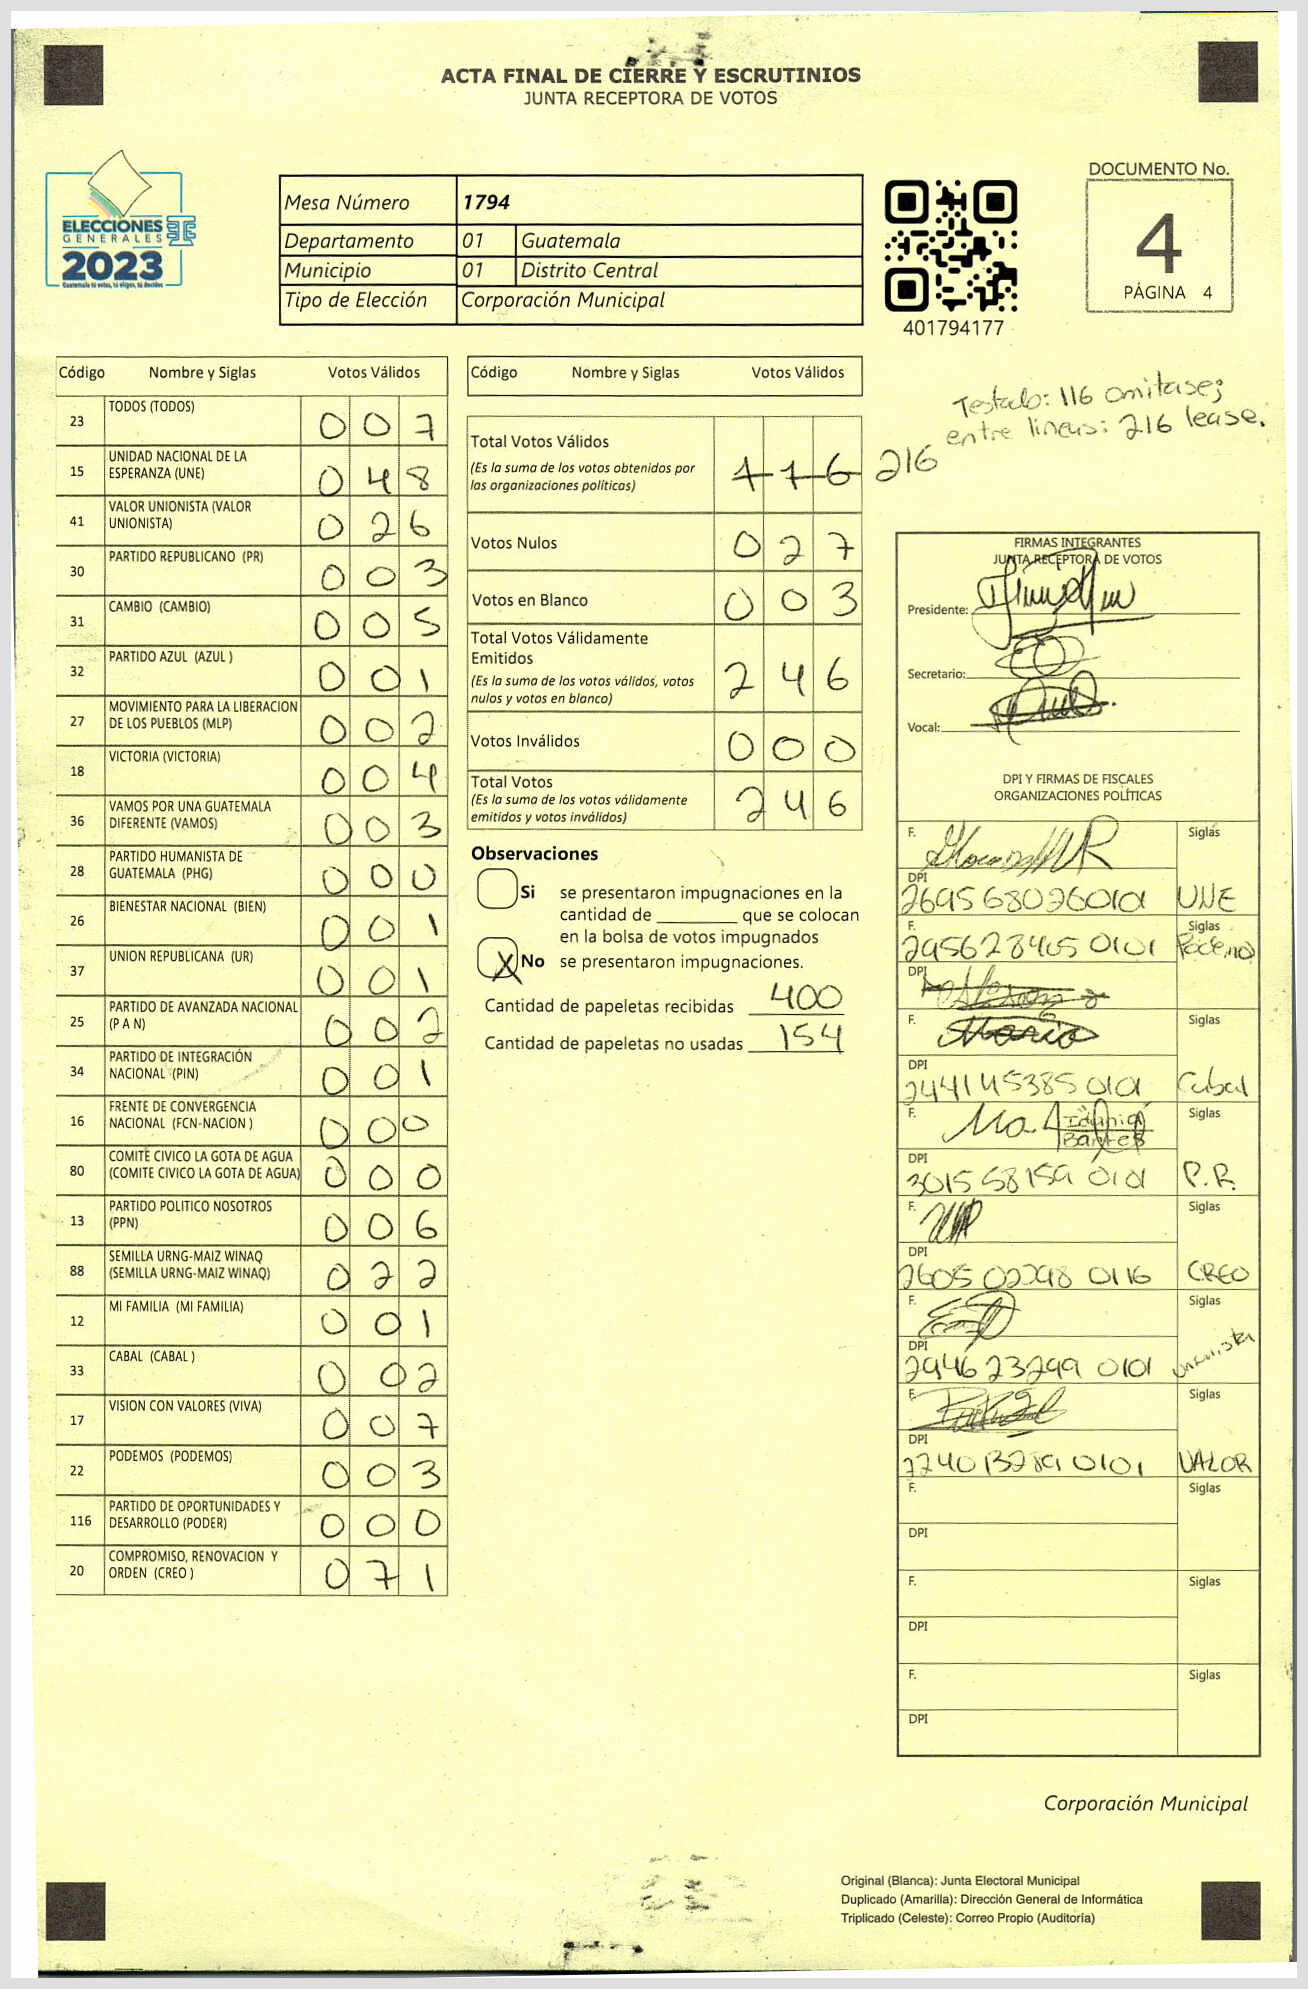 ACTA FINAL DE CIERRE Y ESCRUTINIOS
JUNTA RECEPTORA DE VOTOS
ELECCIONES
GENERALES
2023
Guatemala tú votas, tú eliges, tú decides
Mesa Número 1794
Departamento 01 Guatemala
Municipio 01 Distrito Central
Tipo de Elección Corporación Municipal
401794177
DOCUMENTO No.
4
PÁGINA 4
Testado: 116 omitase;
entre lineas: 216 lease.
Código Nombre y Siglas Votos Válidos
23 TODOS (TODOS) 0 0 7
15 UNIDAD NACIONAL DE LA
ESPERANZA (UNE) 0 4 8
41 VALOR UNIONISTA (VALOR
UNIONISTA) 0 2 6
30 PARTIDO REPUBLICANO (PR) 0 0 3
31 CAMBIO (CAMBIO) 0 0 5
32 PARTIDO AZUL (AZUL ) 0 0 1
27 MOVIMIENTO PARA LA LIBERACION
DE LOS PUEBLOS (MLP) 0 0 2
18 VICTORIA (VICTORIA) 0 0 4
36 VAMOS POR UNA GUATEMALA
DIFERENTE (VAMOS) 0 0 3
28 PARTIDO HUMANISTA DE
GUATEMALA (PHG) 0 0 0
26 BIENESTAR NACIONAL (BIEN) 0 0 1
37 UNION REPUBLICANA (UR) 0 0 1
25 PARTIDO DE AVANZADA NACIONAL
(P A N) 0 0 2
34 PARTIDO DE INTEGRACIÓN
NACIONAL (PIN) 0 0 1
16 FRENTE DE CONVERGENCIA
NACIONAL (FCN-NACION ) 0 0 0
80 COMITÉ CIVICO LA GOTA DE AGUA
(COMITE CIVICO LA GOTA DE AGUA) 0 0 0
13 PARTIDO POLITICO NOSOTROS
(PPN) 0 0 6
88 SEMILLA URNG-MAIZ WINAQ
(SEMILLA URNG-MAIZ WINAQ) 0 2 2
12 MI FAMILIA (MI FAMILIA) 0 0 1
33 CABAL (CABAL ) 0 0 2
17 VISION CON VALORES (VIVA) 0 0 7
22 PODEMOS (PODEMOS) 0 0 3
116 PARTIDO DE OPORTUNIDADES Y
DESARROLLO (PODER) 0 0 0
20 COMPROMISO, RENOVACION Y
ORDEN (CREO ) 0 7 1
Código Nombre y Siglas Votos Válidos
Total Votos Válidos
(Es la suma de los votos obtenidos por
las organizaciones políticas) 1 1 6 216
Votos Nulos 0 2 7
Votos en Blanco 0 0 3
Total Votos Válidamente
Emitidos
(Es la suma de los votos válidos, votos
nulos y votos en blanco) 2 4 6
Votos Inválidos 0 0 0
Total Votos
(Es la suma de los votos válidamente
emitidos y votos inválidos) 2 4 6
Observaciones
Si se presentaron impugnaciones en la
cantidad de ________ que se colocan
en la bolsa de votos impugnados
X No se presentaron impugnaciones.
Cantidad de papeletas recibidas 400
Cantidad de papeletas no usadas 154
FIRMAS INTEGRANTES
JUNTA RECEPTORA DE VOTOS
Presidente:
Secretario:
Vocal:
DPI Y FIRMAS DE FISCALES
ORGANIZACIONES POLÍTICAS
F. Siglas
DPI
2695 68026 0101 UNE
F. Siglas
295628405 0101 Podemos
DPI
F. Mario Siglas
DPI
2441145385 0101 Cabal
F. Siglas
DPI
3015 58159 0101 P.R.
F. Siglas
DPI
2605 02298 0116 CREO
F. Siglas
DPI
2946 23299 0101 Unionista
F. Siglas
DPI
0101 VALOR
F. Siglas
DPI
F. Siglas
DPI
F. Siglas
DPI
Corporación Municipal
Original (Blanca): Junta Electoral Municipal
Duplicado (Amarilla): Dirección General de Informática
Triplicado (Celeste): Correo Propio (Auditoría)